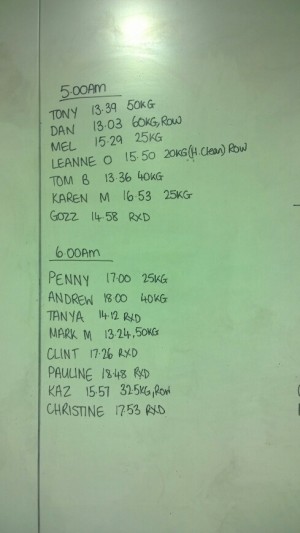 5.00AM
TONY 13.39 50KG
DAN 13.03 60KG, ROW
MEL 15.29 25KG
LEANNE O 15.50 20KG (H.Clean) ROW
TOM B 13.36 40KG
KAREN M 16.53 25KG
GOZZ 14.58 RXD
6.00AM
PENNY 17.00 25KG
ANDREW 18.00 40KG
TANYA 14.12 RXD
MARK M 13.24, 50KG
CLINT 17.26 RXD
PAULINE 18.48 RXD
KAZ 15.57 32.5KG, ROW
CHRISTINE 17.53 RXD